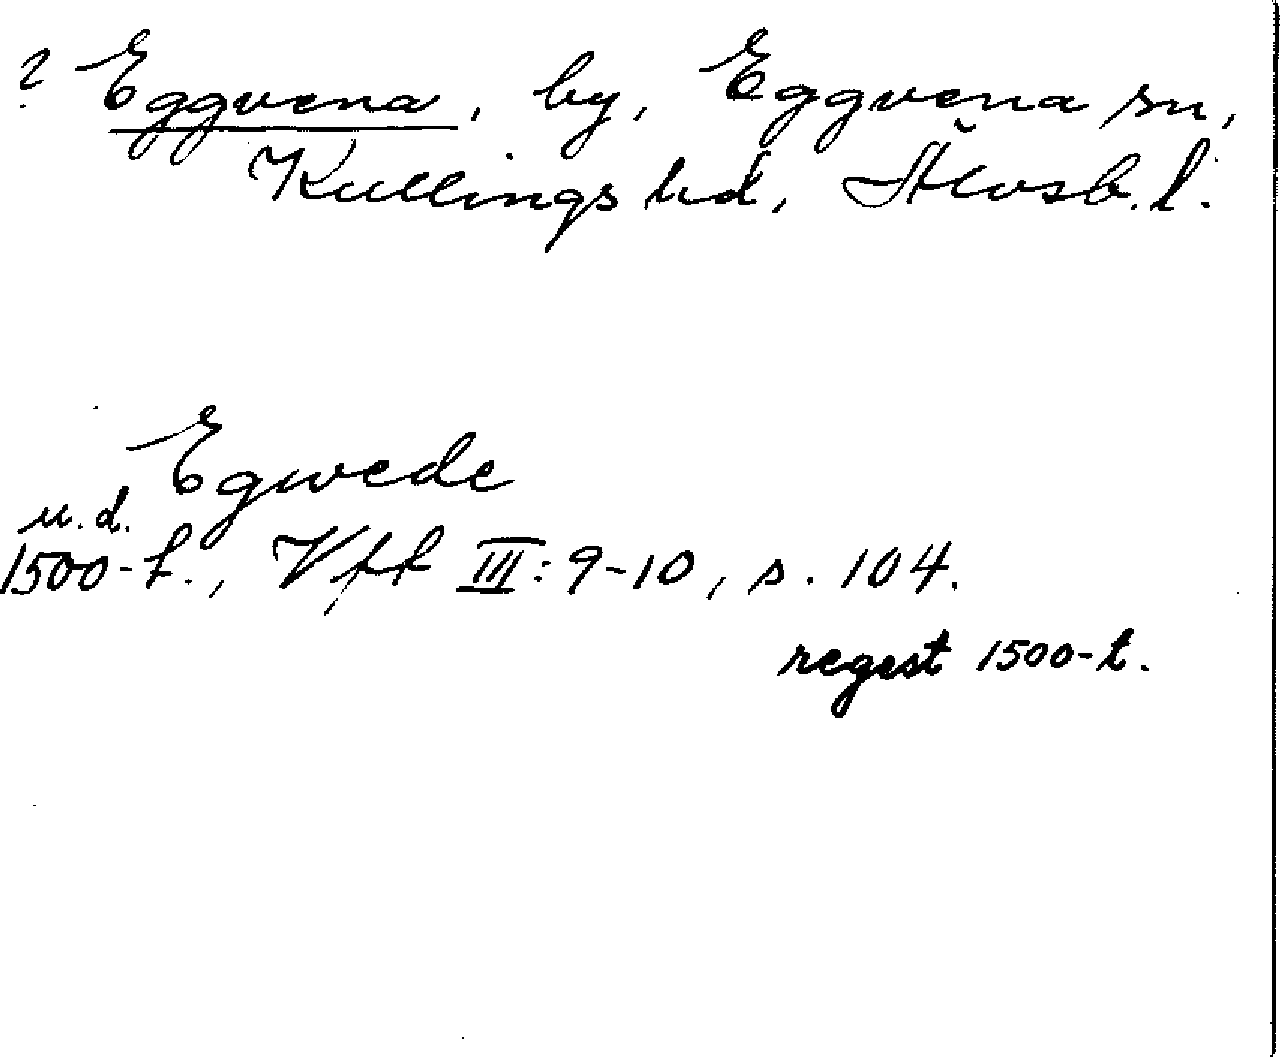 ? Eggvena, by, Eggvena sn,
Kullings hd, Älvsb. l.
Egwede
u. d.
1500-t., Vfft III: 9-10, s. 104.
regest 1500-t.